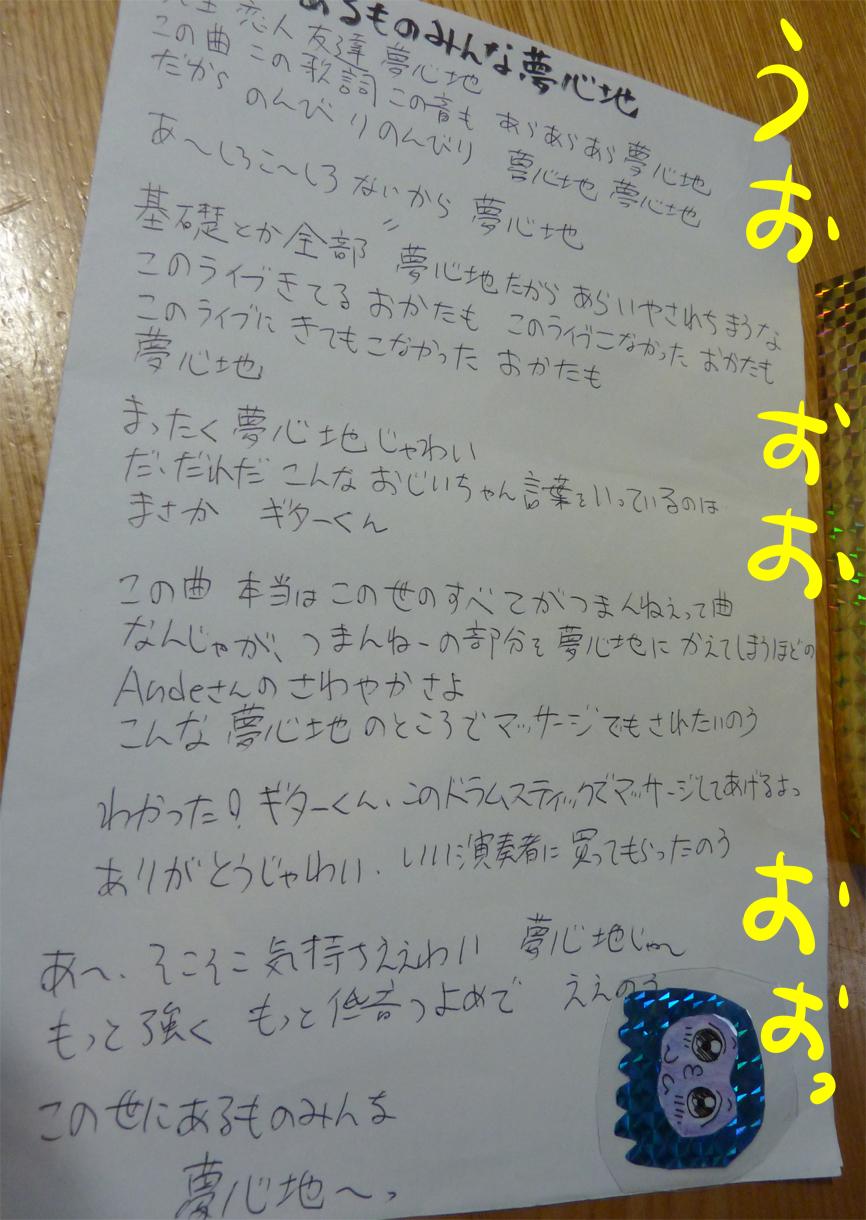 あるものみんな夢心地
恋人 友達 夢心地
この曲 この歌詞 この音も あらあらあら 夢心地
だから のんびりのんびり 夢心地 夢心地
あ〜しろこ〜しろ ないから 夢心地
基礎とか全部 夢心地だから あらいやされちまうな
このライブきてる おかたも このライブこなかった おかたも
このライブに きてもこなかった おかたも
夢心地
まったく夢心地じゃわい
だ、だれだ こんな おじいちゃん言葉をいっているのは
まさか ギターくん
この曲 本当は この世のすべてがつまんねぇって曲
なんじゃが、つまんねーの部分を 夢心地に かえてしまうほどの
Andeさんの さわやかさよ
こんな 夢心地 のところで マッサージでもされたいのう
わかった! ギターくん、このドラムスティックでマッサージしてあげるよっ
ありがとうじゃわい、いい演奏者に 買ってもらったのう
あ〜、そこそこ 気持ちええわい 夢心地じゃ〜
もっと強く もっと低音つよめで ええのう
この世にあるものみんな
夢心地〜っ
うお おお おおっ